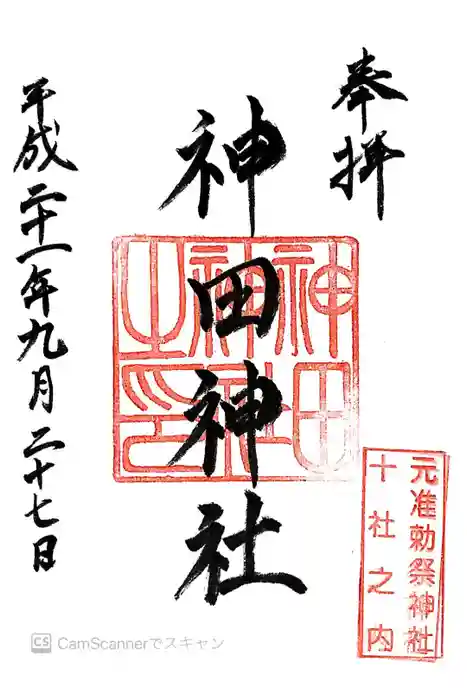 奉拝
神田神社
神田神社之印
元准勅祭神社
十社之内
平成二十一年九月二十七日
CS CamScannerでスキャン